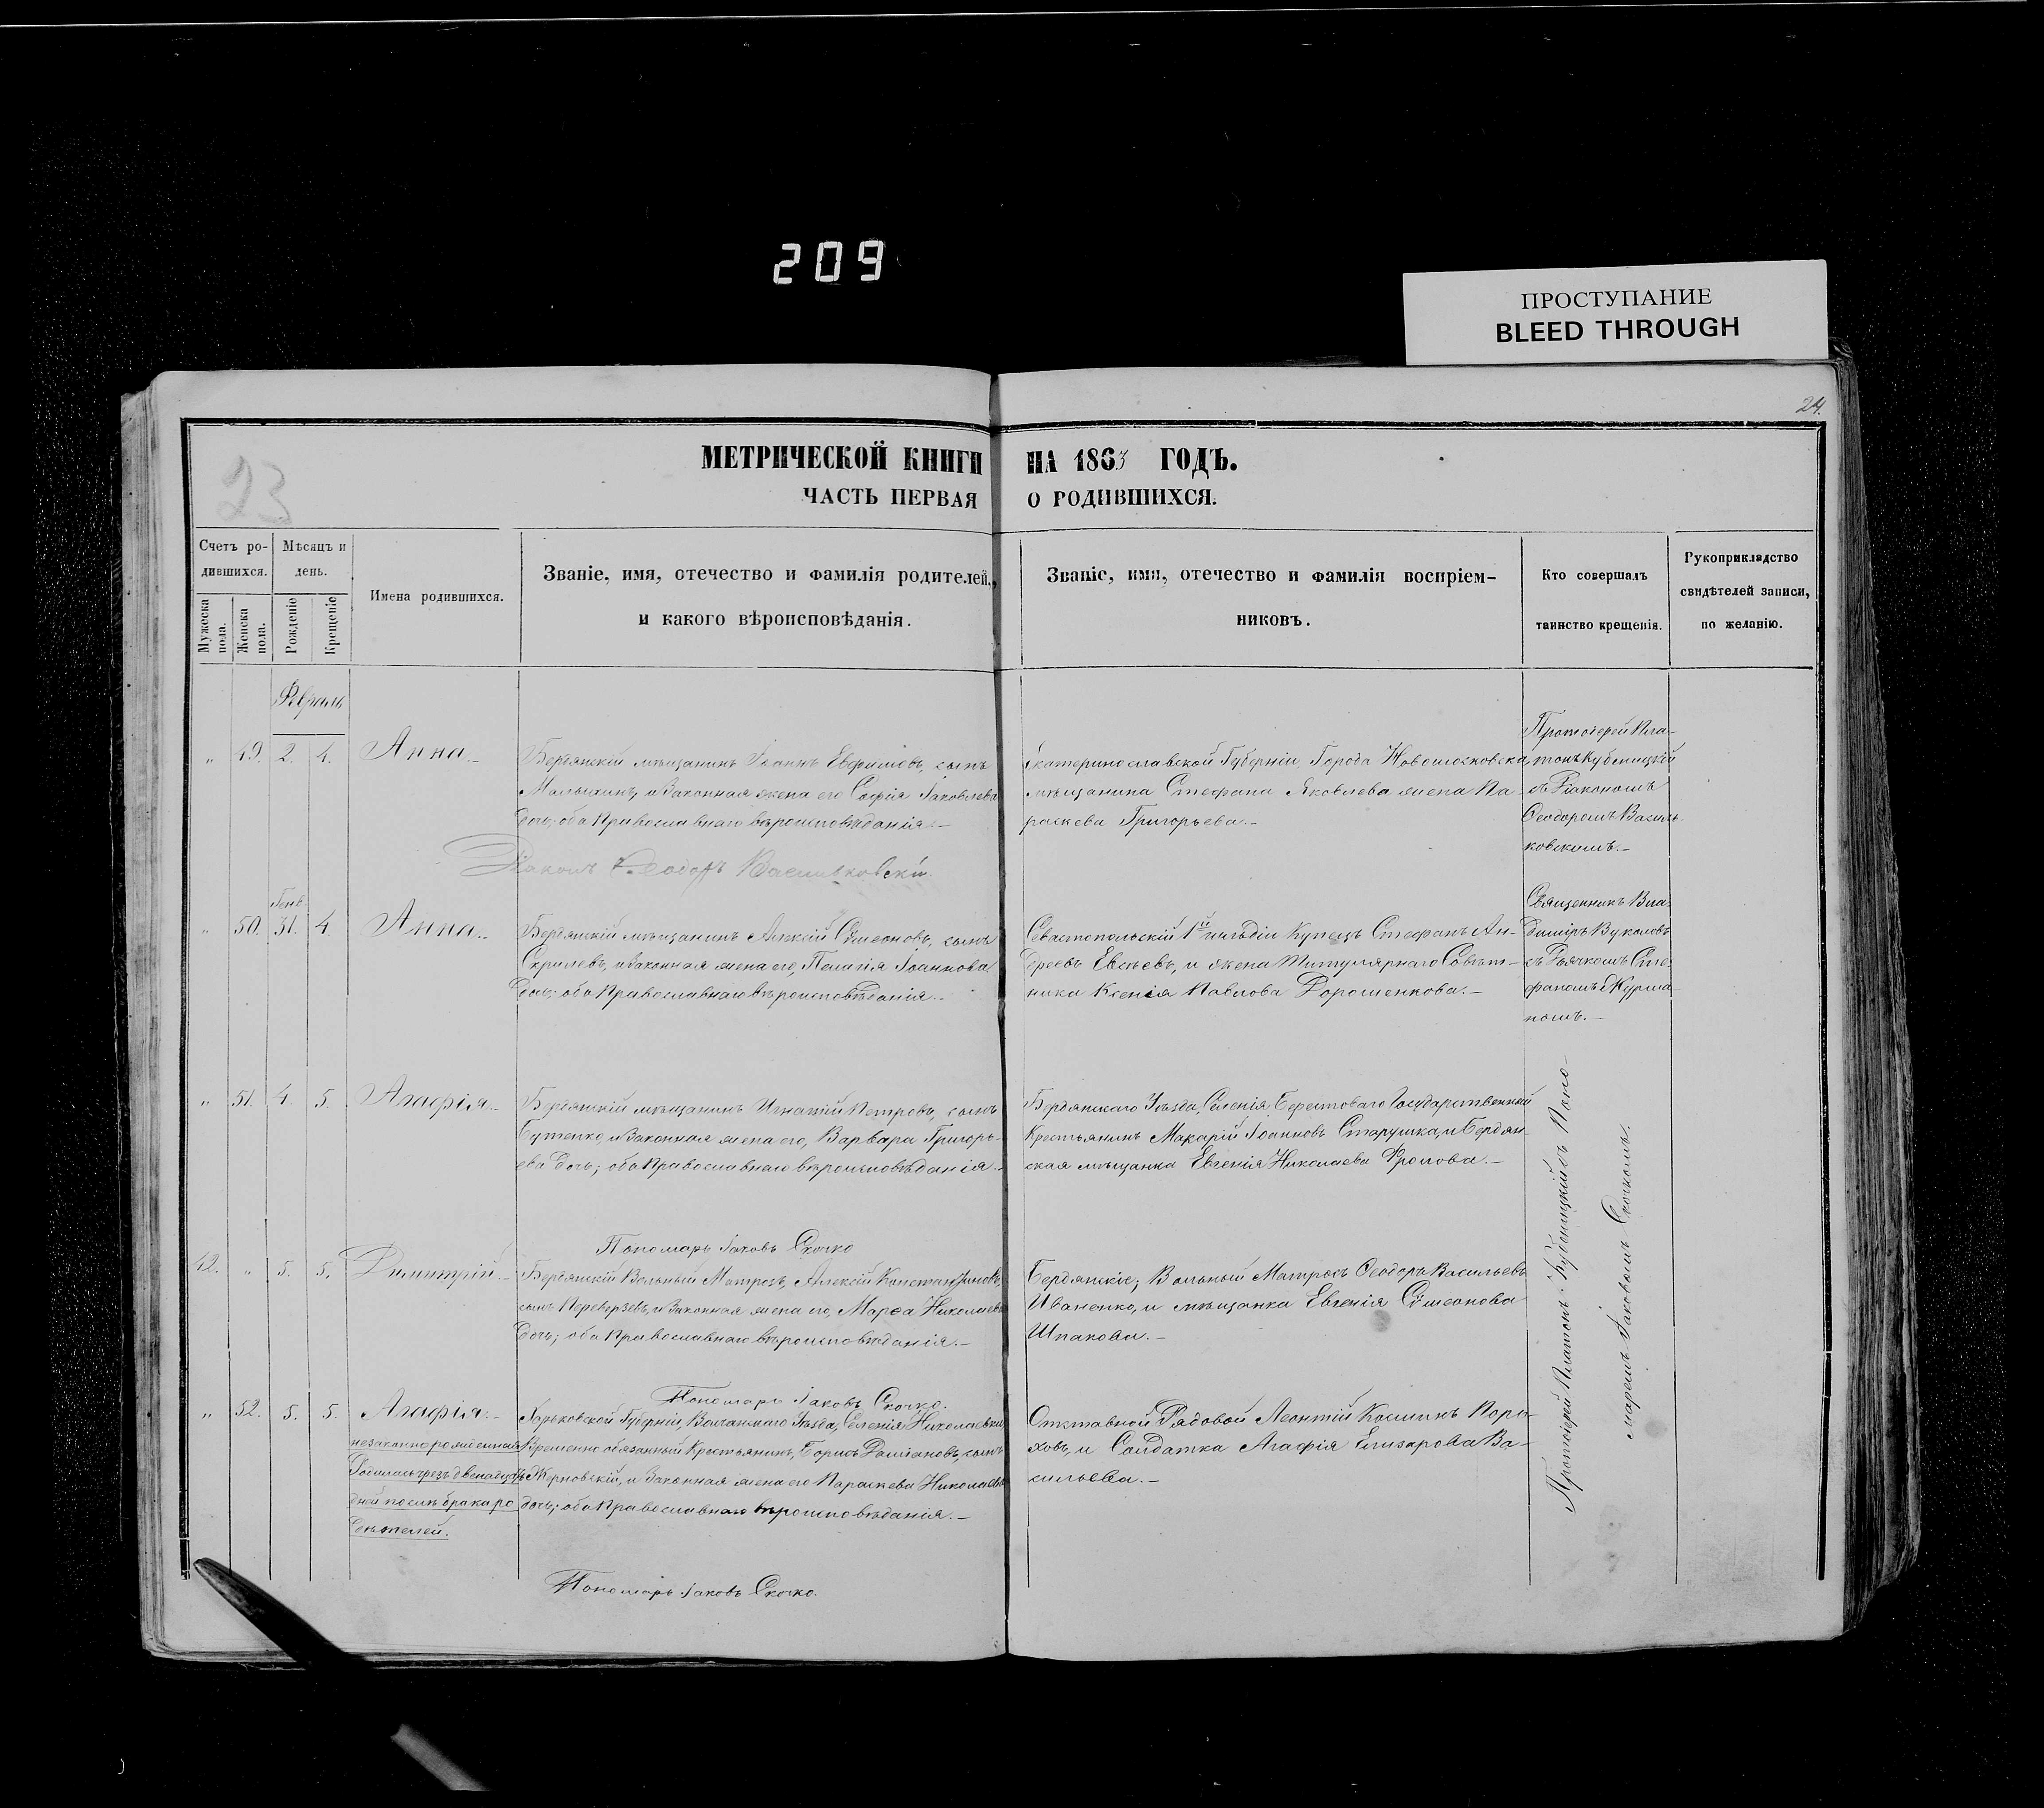 209
ПРОСТУПАНИЕ
BLEED THROUGH
24.
23
МЕТРИЧЕСКОЙ КНИГИ НА 1863 ГОДЪ.
ЧАСТЬ ПЕРВАЯ О РОДИВШИХСЯ.
Счетъ ро-
дившихся.
Мужеска пола.
Женска пола.
Мѣсяцъ и
день.
Рожденіе
Крещеніе
Имена родившихся.
Званіе, имя, отечество и фамилія родителей,
и какого вѣроисповѣданія.
Званіе, имя, отечество и фамилія воспріем-
никовъ.
Кто совершалъ
таинство крещенія.
Рукоприкладство
свидѣтелей записи,
по желанію.
Февраль
„ 49. 2. 4. Анна.-
Бердянскій мѣщанинъ Іоаннъ Евфимовъ, сынъ
Малыхинъ, и законная жена его Софія Іаковлева
дочь; оба Православнаго вѣроисповѣданія.-
Екатеринославской Губерніи, Города Новомосковска,
мѣщанина Стефана Яковлева жена Па-
раскева Григорьева.-
Протоіерей Пла-
тонъ Кубеницкій
съ Діакономъ
Ѳеодоромъ Василь-
ковскимъ.-
Діаконъ Ѳеодоръ Васильковскій.
Генв.
„ 50. 31. 4. Анна.-
Бердянскій мѣщанинъ Алексій Сѵмеоновъ, сынъ
Скрилевъ, и законная жена его, Пелагія Іоаннова
дочь; оба Православнаго вѣроисповѣданія.-
Севастопольскій 1й гильдіи Купецъ Стефанъ Ан-
дреевъ Евсѣевъ, и жена Титулярнаго Совѣт-
ника Ксенія Павлова Дорошенкова.-
Священникъ Вла-
диміръ Вуколовъ
съ Дьячкомъ Сте-
фаномъ Журма-
номъ.-
„ 51. 4. 5. Агафія.-
Бердянскій мѣщанинъ Игнатій Петровъ, сынъ
Бутенко, и законная жена его, Варвара Григорь-
ева дочь; оба Православнаго вѣроисповѣданія.-
Бердянскаго Уѣзда, Селенія Берестоваго Государственный
Крестьянинъ Макарій Іоанновъ Старушка, и Бердян-
ская мѣщанка Евгенія Николаева Фролова.-
Протоіерей Платонъ Кубеницкій съ Поно-
маремъ Іаковомъ Скочкомъ.
Пономарь Іаковъ Скочко
42. „ 5. 5. Димитрій.-
Бердянскій Вольный Матрозъ, Алексій Константиновъ,
сынъ Переверзевъ, и законная жена его, Марѳа Николаева
дочь; оба Православнаго вѣроисповѣданія.-
Бердянскіе; Вольный Матрозъ Ѳеодоръ Васильевъ
Иваненко, и мѣщанка Евгенія Сѵмеонова
Шпакова.-
Пономарь Іаковъ Скочко.
„ 52. 5. 5. Агафія.-
незаконнорожденная
Родилась чрезъ двенадцать
дней послѣ брака ро
дителей.
Харьковской Губерніи, Волчанскаго Уѣзда, Селенія Николаевки
Временно обязанный Крестьянинъ, Борисъ Даміановъ, сынъ
Жерновскій, и законная жена его Параскева Николаева
дочь; оба Православнаго вѣроисповѣданія.-
Отставной Рядовой Леонтій Косминъ
и Солдатка Агафія Елизарова Ва-
сильева.-
Пономарь Іаковъ Скочко.